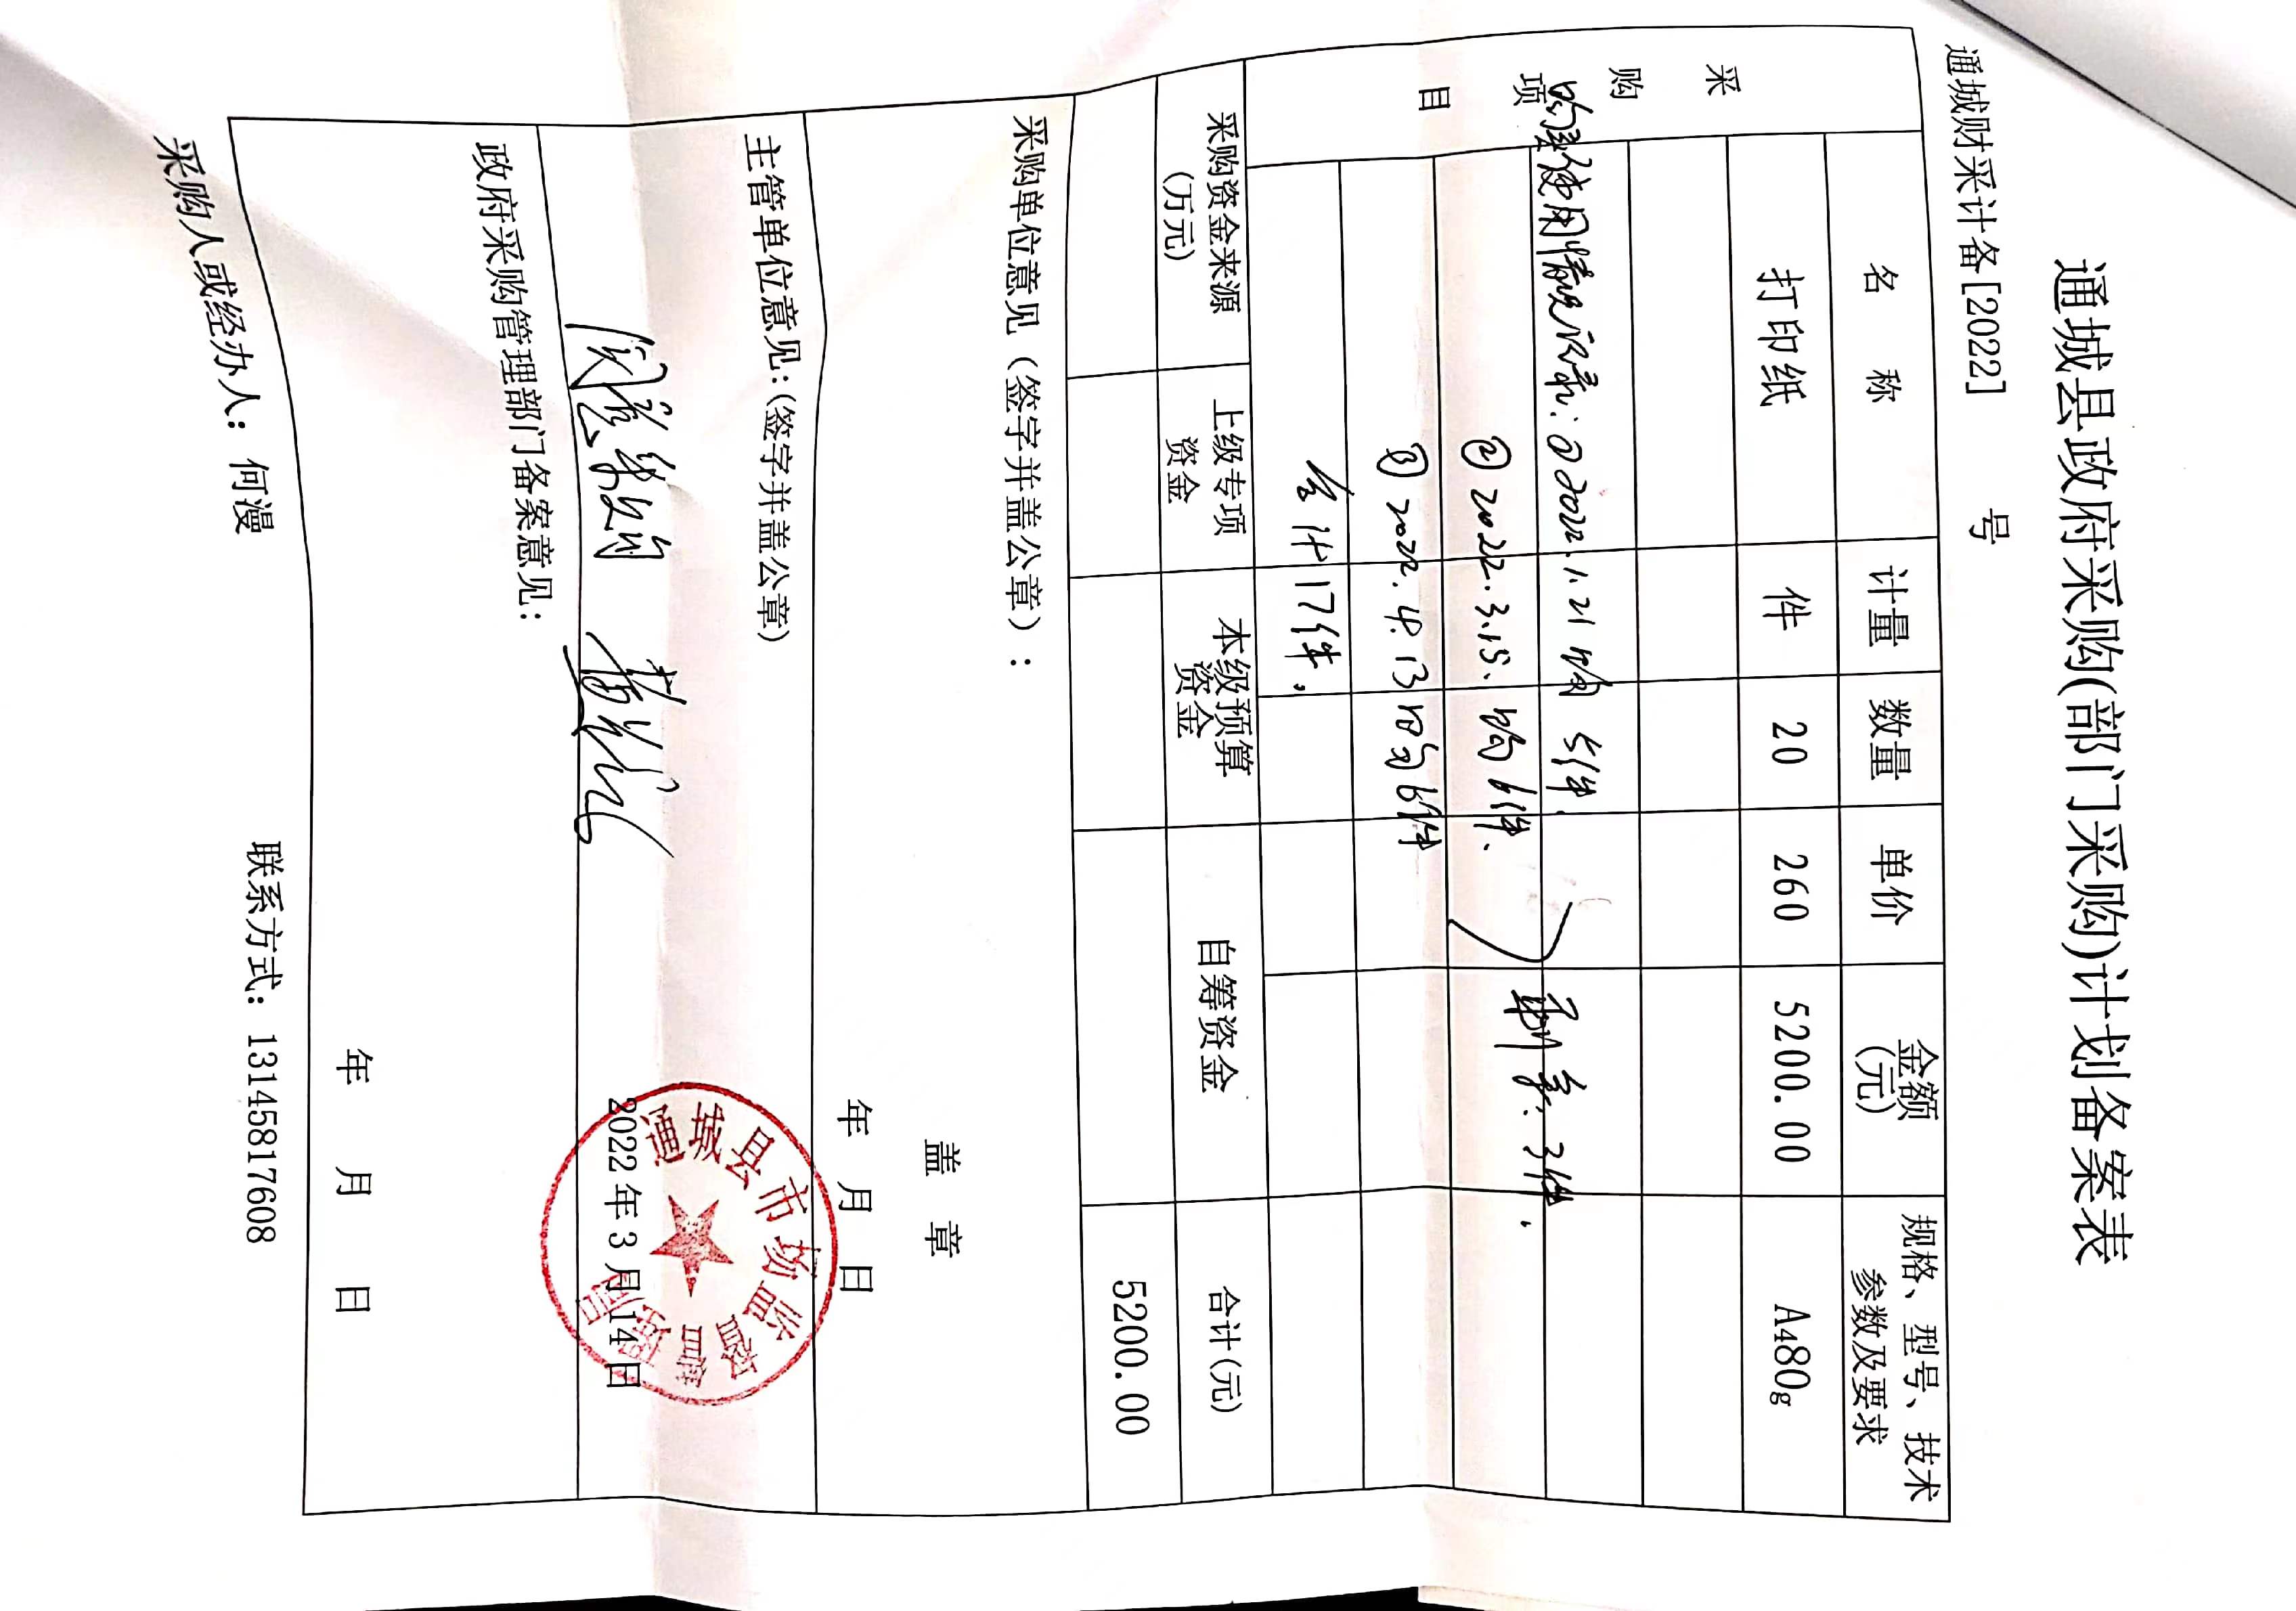 通城县政府采购(部门采购)计划备案表
通城财采计备[2022] 号
采购项目
名 称 计量 数量 单价 金额(元) 规格、型号、技术参数及要求
打印纸 件 20 260 5200.00 A480g
使用情况记录:①2022.1.21 购 5件.
②2022.3.15. 购6件. 剩余.3件.
③2022.4.13 购6件
合计17件。
采购资金来源(万元) 上级专项资金 本级预算资金 自筹资金 合计(元)
5200.00
采购单位意见(签字并盖公章):
盖 章
年 月 日
主管单位意见:(签字并盖公章)
2022年3月14日
通城县市场监督管理局
政府采购管理部门备案意见:
年 月 日
采购人或经办人: 何漫 联系方式: 13145817608